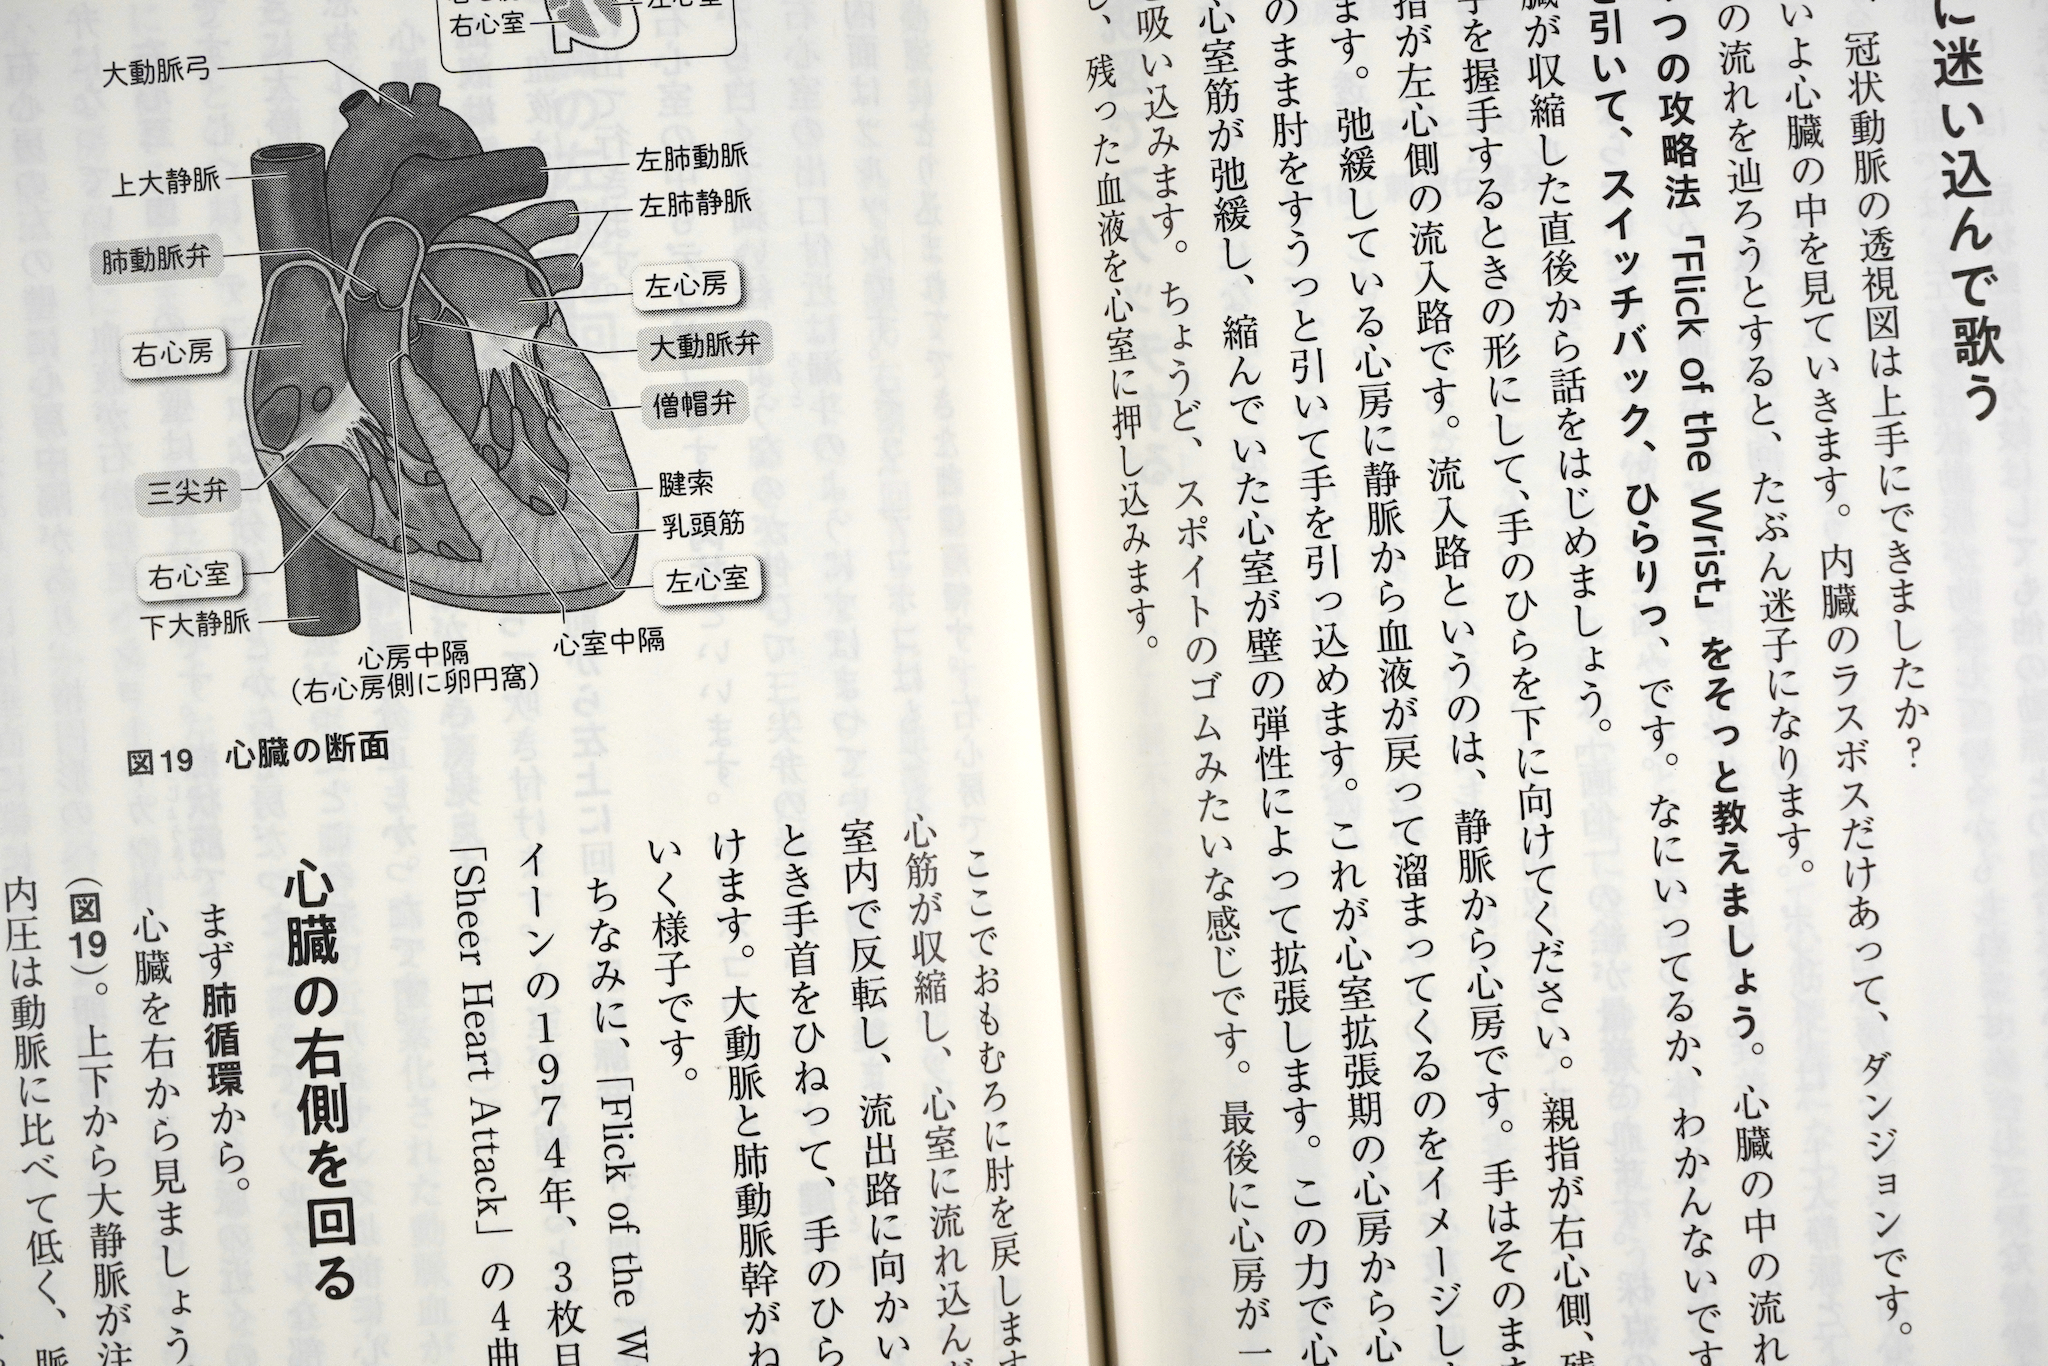 に迷い込んで歌う
冠状動脈の透視図は上手にできましたか?
いよ心臓の中を見ていきます。内臓のラスボスだけあって、ダンジョンです。
の流れを辿ろうとすると、たぶん迷子になります。
つの攻略法「Flick of the Wrist」をそっと教えましょう。心臓の中の流れ
を引いて、スイッチバック、ひらりっ、です。なにいってるか、わかんないです
臓が収縮した直後から話をはじめましょう。
手を握手するときの形にして、手のひらを下に向けてください。親指が右心側、残
指が左心側の流入路です。流入路というのは、静脈から心房です。手はそのまま
ます。弛緩している心房に静脈から血液が戻って溜まってくるのをイメージし
のまま肘をすうっと引いて手を引っ込めます。これが心室拡張期の心房から心
心室筋が弛緩し、縮んでいた心室が壁の弾性によって拡張します。この力で心
を吸い込みます。ちょうど、スポイトのゴムみたいな感じです。最後に心房が一
し、残った血液を心室に押し込みます。
右心室
左心室
大動脈弓
上大静脈
肺動脈弁
右心房
三尖弁
右心室
下大静脈
左肺動脈
左肺静脈
左心房
大動脈弁
僧帽弁
腱索
乳頭筋
左心室
心室中隔
心房中隔
(右心房側に卵円窩)
図19 心臓の断面
ここでおもむろに肘を戻します
心筋が収縮し、心室に流れ込んだ
室内で反転し、流出路に向かい
とき手首をひねって、手のひら
けます。大動脈と肺動脈幹がね
いく様子です。
ちなみに、「Flick of the W
イーンの1974年、3枚目
「Sheer Heart Attack」の4曲
心臓の右側を回る
まず肺循環から。
心臓を右から見ましょう
(図19)。上下から大静脈が注
内圧は動脈に比べて低く、脈